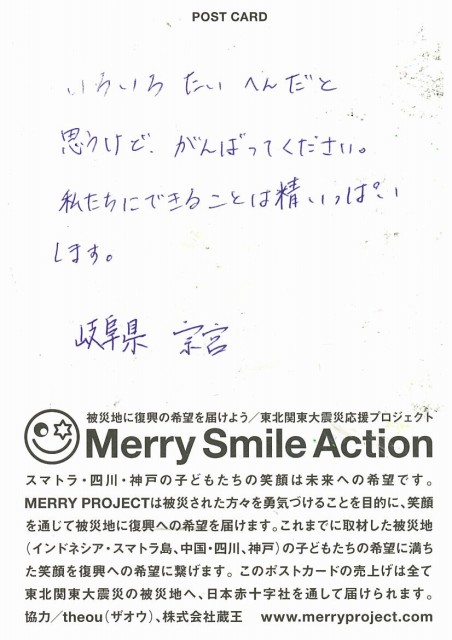 POST CARD
いろいろ たいへんだと
思うけど、がんばってください。
私たちにできることは精いっぱい
します。
岐阜県 宗宮
被災地に復興の希望を届けよう／東北関東大震災応援プロジェクト
Merry Smile Action
スマトラ・四川・神戸の子どもたちの笑顔は未来への希望です。
MERRY PROJECTは被災された方々を勇気づけることを目的に、笑顔
を通じて被災地に復興への希望を届けます。これまでに取材した被災地
（インドネシア・スマトラ島、中国・四川、神戸）の子どもたちの希望に満ち
た笑顔を復興への希望に繋げます。このポストカードの売上げは全て
東北関東大震災の被災地へ、日本赤十字社を通して届けられます。
協力／theou（ザオウ）、株式会社蔵王 www.merryproject.com